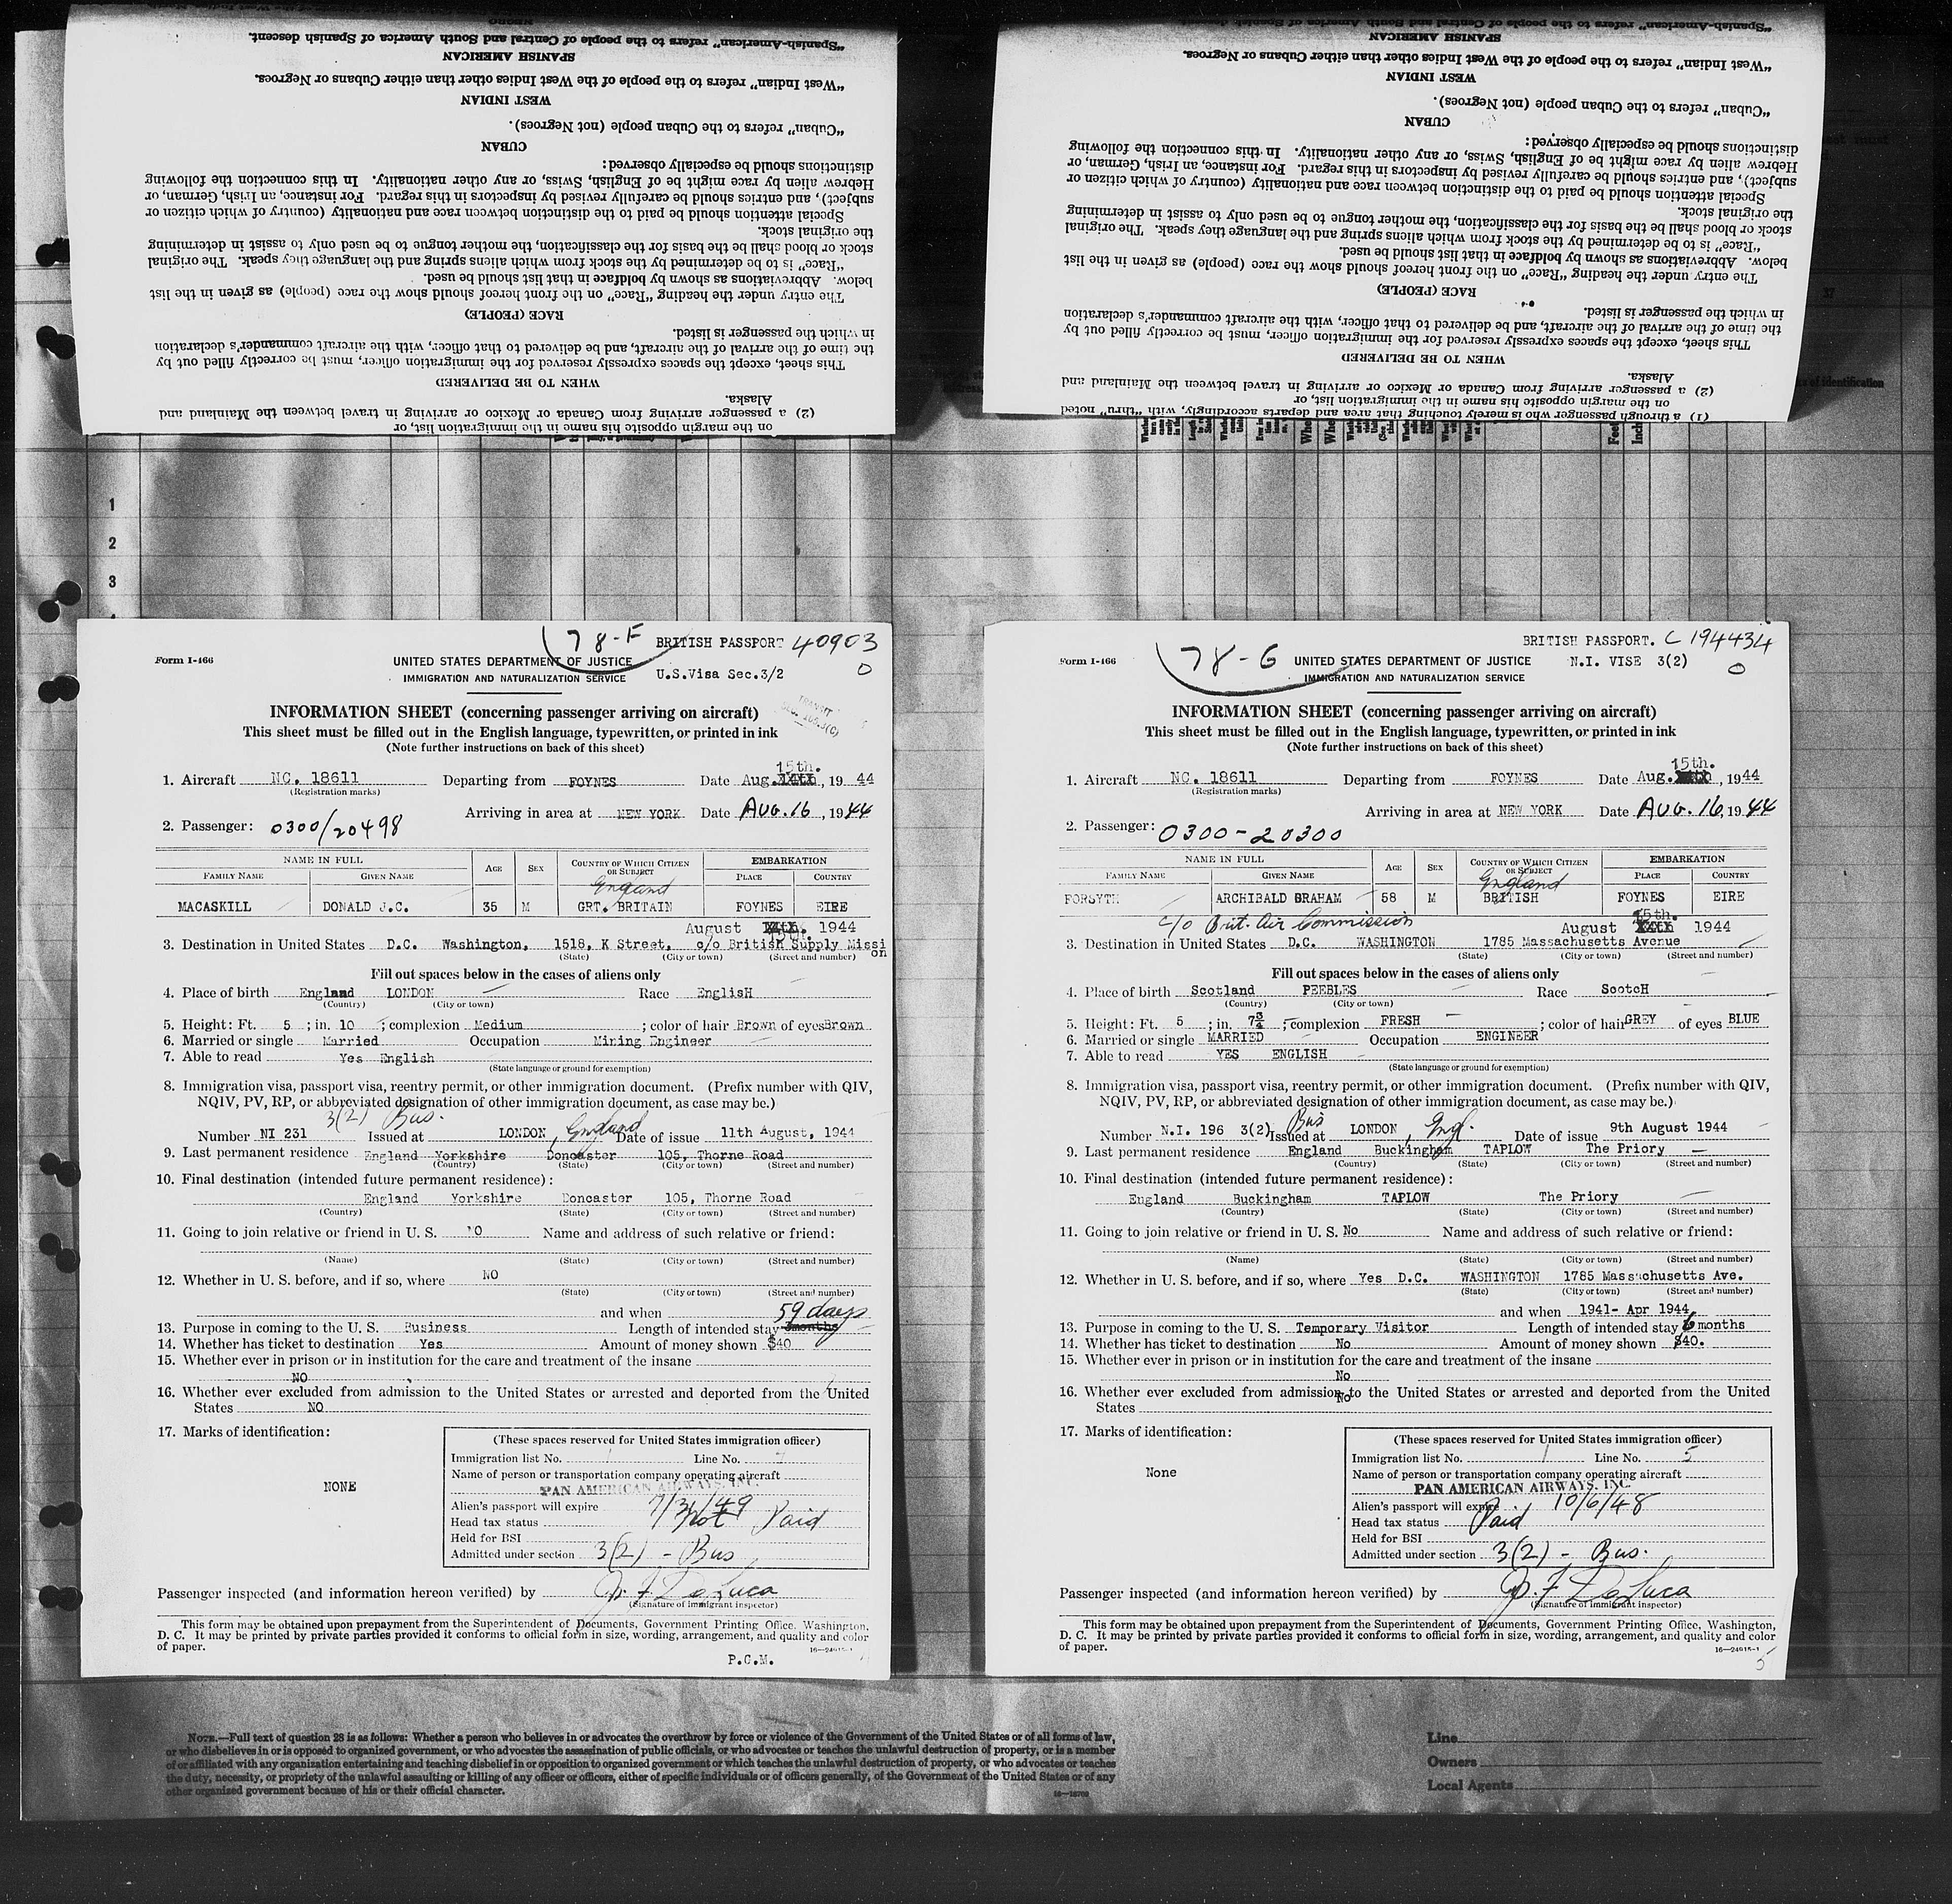 NEGRO
"Spanish-American" refers to the people of Central and South America of Spanish descent.
SPANISH AMERICAN
"West Indian" refers to the people of the West Indies other than either Cubans or Negroes.
WEST INDIAN
"Cuban" refers to the Cuban people (not Negroes).
CUBAN
distinctions should be especially observed:
Hebrew alien by race might be of English, Swiss, or any other nationality. In this connection the following
subject), and entries should be carefully revised by inspectors in this regard. For instance, an Irish, German, or
Special attention should be paid to the distinction between race and nationality (country of which citizen or
the original stock.
stock or blood shall be the basis for the classification, the mother tongue to be used only to assist in determining
"Race" is to be determined by the stock from which aliens spring and the language they speak. The original
below. Abbreviations as shown by boldface in that list should be used.
The entry under the heading "Race" on the front hereof should show the race (people) as given in the list
RACE (PEOPLE)
in which the passenger is listed.
the time of the arrival of the aircraft, and be delivered to that officer, with the aircraft commander's declaration
This sheet, except the spaces expressly reserved for the immigration officer, must be correctly filled out by
WHEN TO BE DELIVERED
Alaska.
(2) a passenger arriving from Canada or Mexico or arriving in travel between the Mainland and
on the margin opposite his name in the immigration list, or
"Spanish-American" refers to the people of Central and South America of Spanish descent.
SPANISH AMERICAN
"West Indian" refers to the people of the West Indies other than either Cubans or Negroes.
WEST INDIAN
"Cuban" refers to the Cuban people (not Negroes).
CUBAN
distinctions should be especially observed:
Hebrew alien by race might be of English, Swiss, or any other nationality. In this connection the following
subject), and entries should be carefully revised by inspectors in this regard. For instance, an Irish, German, or
Special attention should be paid to the distinction between race and nationality (country of which citizen or
the original stock.
stock or blood shall be the basis for the classification, the mother tongue to be used only to assist in determining
"Race" is to be determined by the stock from which aliens spring and the language they speak. The original
below. Abbreviations as shown by boldface in that list should be used.
The entry under the heading "Race" on the front hereof should show the race (people) as given in the list
RACE (PEOPLE)
in which the passenger is listed.
the time of the arrival of the aircraft, and be delivered to that officer, with the aircraft commander's declaration
This sheet, except the spaces expressly reserved for the immigration officer, must be correctly filled out by
WHEN TO BE DELIVERED
Alaska.
(2) a passenger arriving from Canada or Mexico or arriving in travel between the Mainland and
on the margin opposite his name in the immigration list, or
(1) a through passenger who is merely touching that area and departs accordingly, with "thru" noted
37
of identification
Feet
Inch
1
2
3
78-F BRITISH PASSPORT 40903
Form I-466
UNITED STATES DEPARTMENT OF JUSTICE
IMMIGRATION AND NATURALIZATION SERVICE
U.S.Visa Sec.3/2 0
TRANSIT
INFORMATION SHEET (concerning passenger arriving on aircraft)
This sheet must be filled out in the English language, typewritten, or printed in ink
(Note further instructions on back of this sheet)
15th.
1. Aircraft NC. 18611 Departing from FOYNES Date Aug. , 19 44
(Registration marks)
Arriving in area at NEW YORK Date AUG. 16, 1944
2. Passenger: 0300/20498
NAME IN FULL AGE SEX COUNTRY OF WHICH CITIZEN OR SUBJECT EMBARKATION
FAMILY NAME GIVEN NAME England PLACE COUNTRY
MACASKILL DONALD J.C. 35 M GRT. BRITAIN FOYNES EIRE
August 15th. 1944
3. Destination in United States D.C. Washington, 1518, K Street, c/o British Supply Mission
(State) (City or town) (Street and number)
Fill out spaces below in the cases of aliens only
4. Place of birth England LONDON Race EnglisH
(Country) (City or town)
5. Height: Ft. 5 ; in. 10 ; complexion Medium ; color of hair Brown of eyes Brown
6. Married or single Married Occupation Mining Engineer
7. Able to read Yes English
(State language or ground for exemption)
8. Immigration visa, passport visa, reentry permit, or other immigration document. (Prefix number with QIV,
NQIV, PV, RP, or abbreviated designation of other immigration document, as case may be.)
3(2) Bus.
Number NI 231 Issued at LONDON, England Date of issue 11th August, 1944
9. Last permanent residence England Yorkshire Doncaster 105, Thorne Road
(Country) (State) (City or town) (Street and number)
10. Final destination (intended future permanent residence):
England Yorkshire Doncaster 105, Thorne Road
(Country) (State) (City or town) (Street and number)
11. Going to join relative or friend in U. S. NO Name and address of such relative or friend:
(Name) (State) (City or town) (Street and number)
12. Whether in U. S. before, and if so, where NO
(State) (City or town) (Street and number)
and when
59 days
13. Purpose in coming to the U. S. Business Length of intended stay 3months
14. Whether has ticket to destination Yes Amount of money shown $40
15. Whether ever in prison or in institution for the care and treatment of the insane
NO
16. Whether ever excluded from admission to the United States or arrested and deported from the United
States NO
17. Marks of identification:
NONE
(These spaces reserved for United States immigration officer)
Immigration list No. 1 Line No.
Name of person or transportation company operating aircraft
PAN AMERICAN AIRWAYS, INC.
Alien's passport will expire 7/31/49
Head tax status Not Paid
Held for BSI
Admitted under section 3(2) - Bus
Passenger inspected (and information hereon verified) by J. F. DeLuca
(Signature of immigrant inspector)
This form may be obtained upon prepayment from the Superintendent of Documents, Government Printing Office, Washington,
D. C. It may be printed by private parties provided it conforms to official form in size, wording, arrangement, and quality and color
of paper.
P.C.M.
78-G BRITISH PASSPORT. C 194434
Form I-466
UNITED STATES DEPARTMENT OF JUSTICE
N.I. VISE 3(2)
IMMIGRATION AND NATURALIZATION SERVICE
0
INFORMATION SHEET (concerning passenger arriving on aircraft)
This sheet must be filled out in the English language, typewritten, or printed in ink
(Note further instructions on back of this sheet)
15th.
1. Aircraft NC. 18611 Departing from FOYNES Date Aug. , 1944
(Registration marks)
Arriving in area at NEW YORK Date AUG. 16, 1944
2. Passenger: 0300-20300
NAME IN FULL AGE SEX COUNTRY OF WHICH CITIZEN OR SUBJECT EMBARKATION
FAMILY NAME GIVEN NAME England PLACE COUNTRY
FORSYTH ARCHIBALD GRAHAM 58 M BRITISH FOYNES EIRE
c/o Brit. Air Commission
August 15th. 1944
3. Destination in United States D.C. WASHINGTON 1785 Massachusetts Avenue
(State) (City or town) (Street and number)
Fill out spaces below in the cases of aliens only
4. Place of birth Scotland PEEBLES Race ScotcH
(Country) (City or town)
5. Height: Ft. 5 ; in. 7¾ ; complexion FRESH ; color of hair GREY of eyes BLUE
6. Married or single MARRIED Occupation ENGINEER
7. Able to read YES ENGLISH
(State language or ground for exemption)
8. Immigration visa, passport visa, reentry permit, or other immigration document. (Prefix number with QIV,
NQIV, PV, RP, or abbreviated designation of other immigration document, as case may be.)
Bus
Number N.I. 196 3(2) Issued at LONDON, Eng. Date of issue 9th August 1944
9. Last permanent residence England Buckingham TAPLOW The Priory
(Country) (State) (City or town) (Street and number)
10. Final destination (intended future permanent residence):
England Buckingham TAPLOW The Priory
(Country) (State) (City or town) (Street and number)
11. Going to join relative or friend in U. S. No Name and address of such relative or friend:
(Name) (State) (City or town) (Street and number)
12. Whether in U. S. before, and if so, where Yes D.C. WASHINGTON 1785 Massachusetts Ave.
(State) (City or town) (Street and number)
and when 1941- Apr 1944
13. Purpose in coming to the U. S. Temporary Visitor Length of intended stay 6 months
14. Whether has ticket to destination No Amount of money shown $40.
15. Whether ever in prison or in institution for the care and treatment of the insane
No
16. Whether ever excluded from admission to the United States or arrested and deported from the United
States No
17. Marks of identification:
None
(These spaces reserved for United States immigration officer)
Immigration list No. 1 Line No. 5
Name of person or transportation company operating aircraft
PAN AMERICAN AIRWAYS, INC.
Alien's passport will expire 10/6/48
Head tax status Paid
Held for BSI
Admitted under section 3(2) - Bus.
Passenger inspected (and information hereon verified) by J. F. DeLuca
(Signature of immigrant inspector)
This form may be obtained upon prepayment from the Superintendent of Documents, Government Printing Office, Washington,
D. C. It may be printed by private parties provided it conforms to official form in size, wording, arrangement, and quality and color
of paper.
5
NOTE.—Full text of question 28 is as follows: Whether a person who believes in or advocates the overthrow by force or violence of the Government of the United States or of all forms of law,
or who disbelieves in or is opposed to organized government, or who advocates the assassination of public officials, or who advocates or teaches the unlawful destruction of property, or is a member
of or affiliated with any organization entertaining and teaching disbelief in or opposition to organized government or which teaches the unlawful destruction of property, or who advocates or teaches
the duty, necessity, or propriety of the unlawful assaulting or killing of any officer or officers, either of specific individuals or of officers generally, of the Government of the United States or of any
other organized government because of his or their official character.
Line
Owners
Local Agents